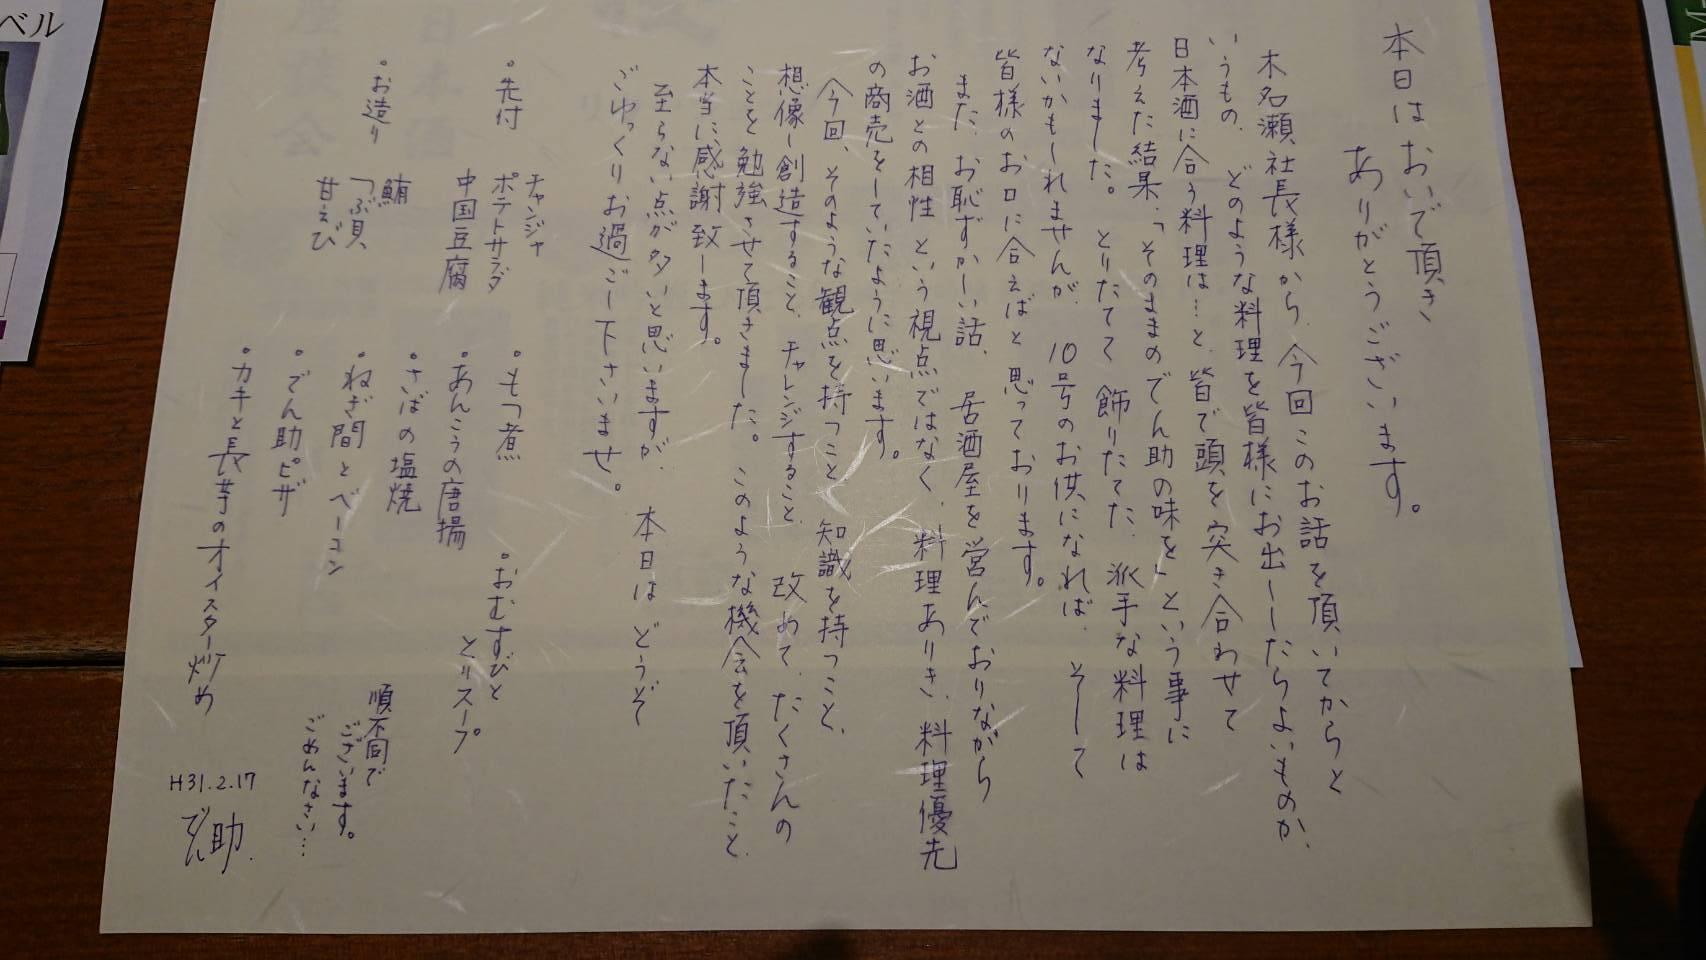 本日はおいで頂き
ありがとうございます。
木名瀬社長様から、今回このお話を頂いてからと
いうもの、どのような料理を皆様にお出ししたらよいものか、
日本酒に合う料理は…と、皆で頭を突き合わせて
考えた結果、「そのままのでん助の味を」という事に
なりました。とりたてて飾りたてた、派手な料理は
ないかもしれませんが、10号のお供になれば、そして
皆様のお口に合えばと思っております。
また、お恥ずかしい話、居酒屋を営んでおりながら
お酒との相性という視点ではなく、料理ありき、料理優先
の商売をしていたように思います。
今回、そのような観点を持つこと、知識を持つこと、
想像し創造すること、チャレンジすること、改めて、たくさんの
ことを勉強させて頂きました。このような機会を頂いたこと、
本当に感謝致します。
至らない点が多いと思いますが、本日はどうぞ
ごゆっくりお過ごし下さいませ。
・先付
チャンジャ
ポテトサラダ
中国豆腐
・お造り
鮪
つぶ貝
甘えび
・もつ煮
・あんこうの唐揚
・さばの塩焼
・ねぎ間とベーコン
・でん助ピザ
・カキと長芋のオイスター炒め
・おむすびと
とりスープ
順不同で
ございます。
ごめんなさい…
H31.2.17
でん助
ベル